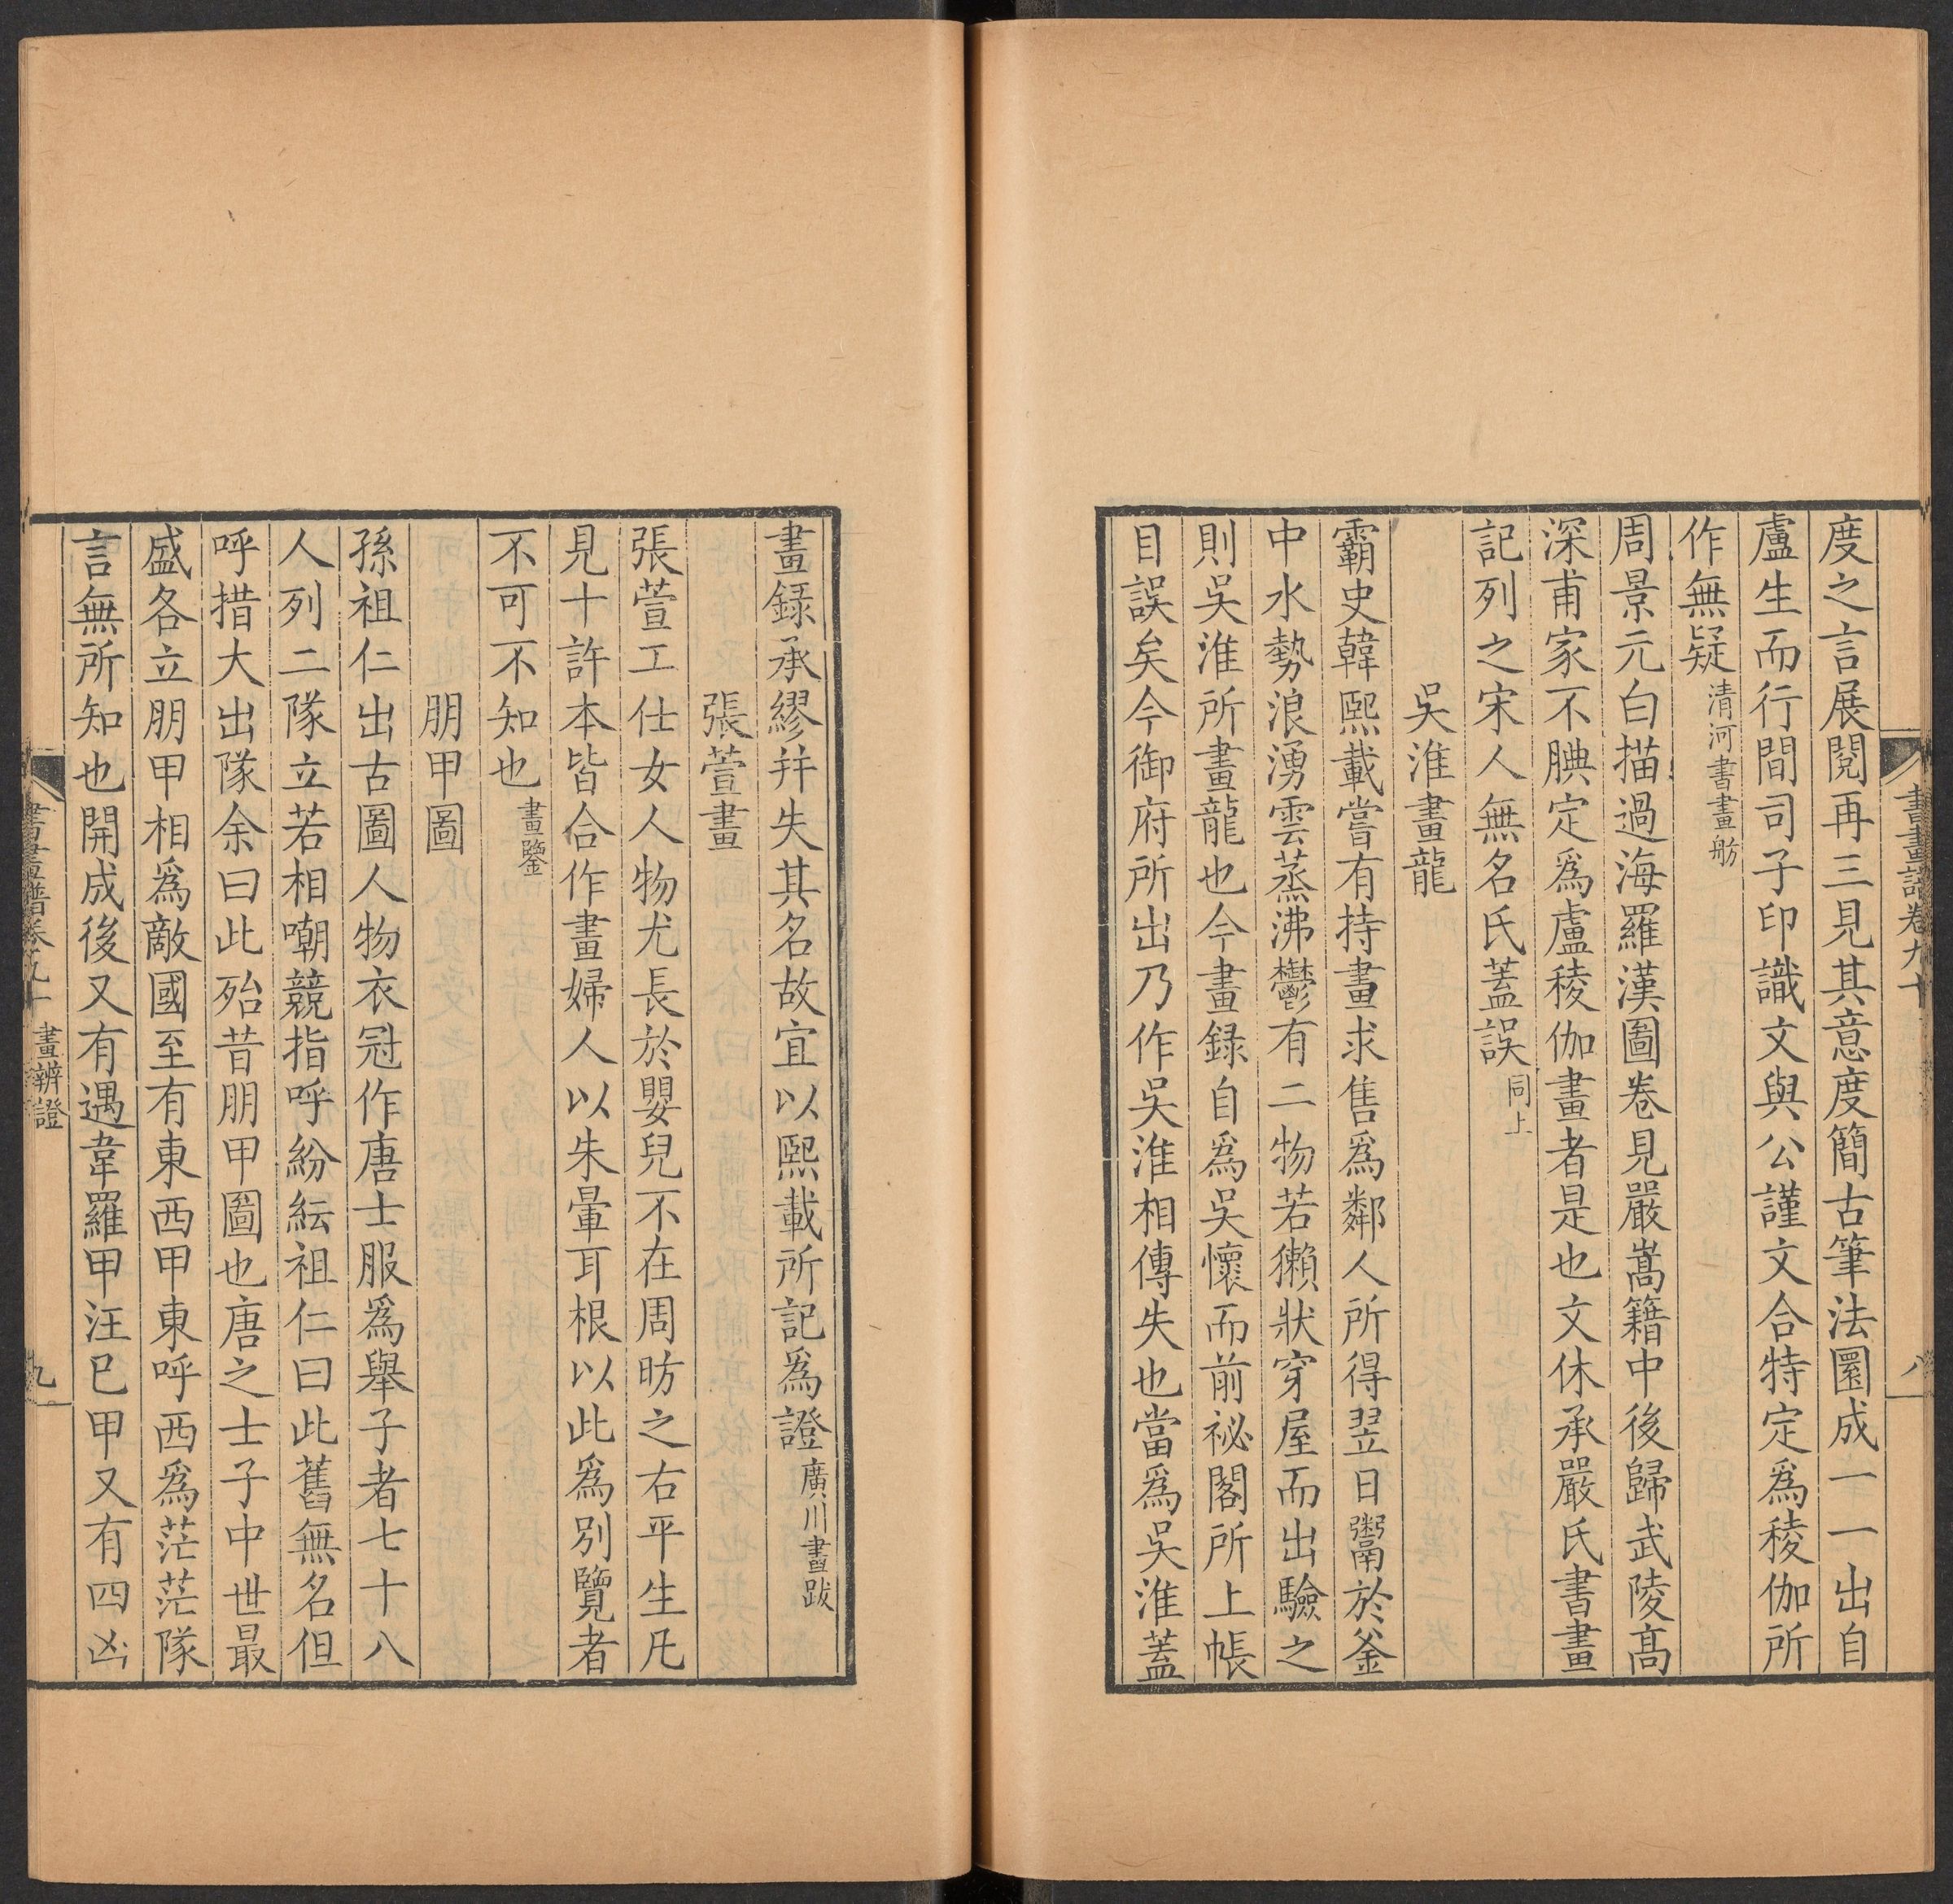 書畫譜卷九十
八
度之言展閱再三見其意度簡古筆法圓成一一出自
盧生而行間司子印識文與公謹文合特定爲稜伽所
作無疑清河書畫舫
周景元白描過海羅漢圖卷見嚴嵩籍中後歸武陵高
深甫家不腆定爲盧稜伽畫者是也文休承嚴氏書畫
記列之宋人無名氏蓋誤同上
吳淮畫龍
霸史韓熙載嘗有持畫求售爲鄰人所得翌日鬻於釜
中水勢浪湧雲蒸沸鬱有二物若獺狀穿屋而出驗之
則吳淮所畫龍也今畫録自爲吳懷而前祕閣所上帳
目誤矣今御府所出乃作吳淮相傳失也當爲吳淮蓋
畫録承繆并失其名故宜以熙載所記爲證廣川畫跋
張萱畫
張萱工仕女人物尤長於嬰兒不在周昉之右平生凡
見十許本皆合作畫婦人以朱暈耳根以此爲別覽者
不可不知也畫鑒
朋甲圖
孫祖仁出古圖人物衣冠作唐士服爲舉子者七十八
人列二隊立若相嘲競指呼紛紜祖仁曰此舊無名但
呼措大出隊余曰此殆昔朋甲圖也唐之士子中世最
盛各立朋甲相爲敵國至有東西甲東呼西爲茫茫隊
言無所知也開成後又有遇韋羅甲汪已甲又有四凶
書畫譜卷九十
畫辨證
九